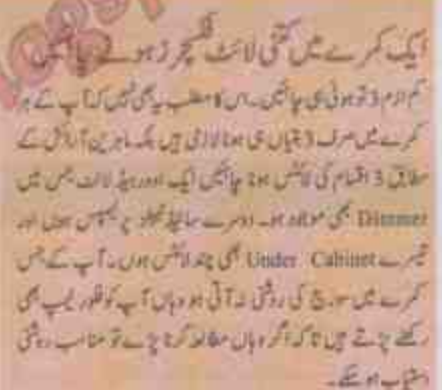 ایک کمرے میں کتنی لائٹ فکسچرز ہونے چاہئیں
کم ازم 3 تو ہونی ہی چاہئیں۔ اس کا مطلب یہ بھی نہیں کہ آپ کے ہر
کمرے میں صرف 3 بتیاں ہی ہونا لازمی ہیں بلکہ ماہرین آرائش کے
مطابق 3 اقسام کی لائٹس ہونا چاہئیں ایک اوورہیڈ لائٹ جس میں
Dimmer بھی موجود ہو۔ دوسرے سائیڈ ٹیبلز پر لیمپس ہوں اور
تیسرے Under Cabinet بھی چند لائٹس ہوں۔ آپ کے جس
کمرے میں سورج کی روشنی نہ آتی ہو وہاں آپ کو فلور لیمپ بھی
رکھنے پڑتے ہیں تاکہ اگر وہاں مطالعہ کرنا پڑے تو مناسب روشنی
دستیاب ہو سکے۔